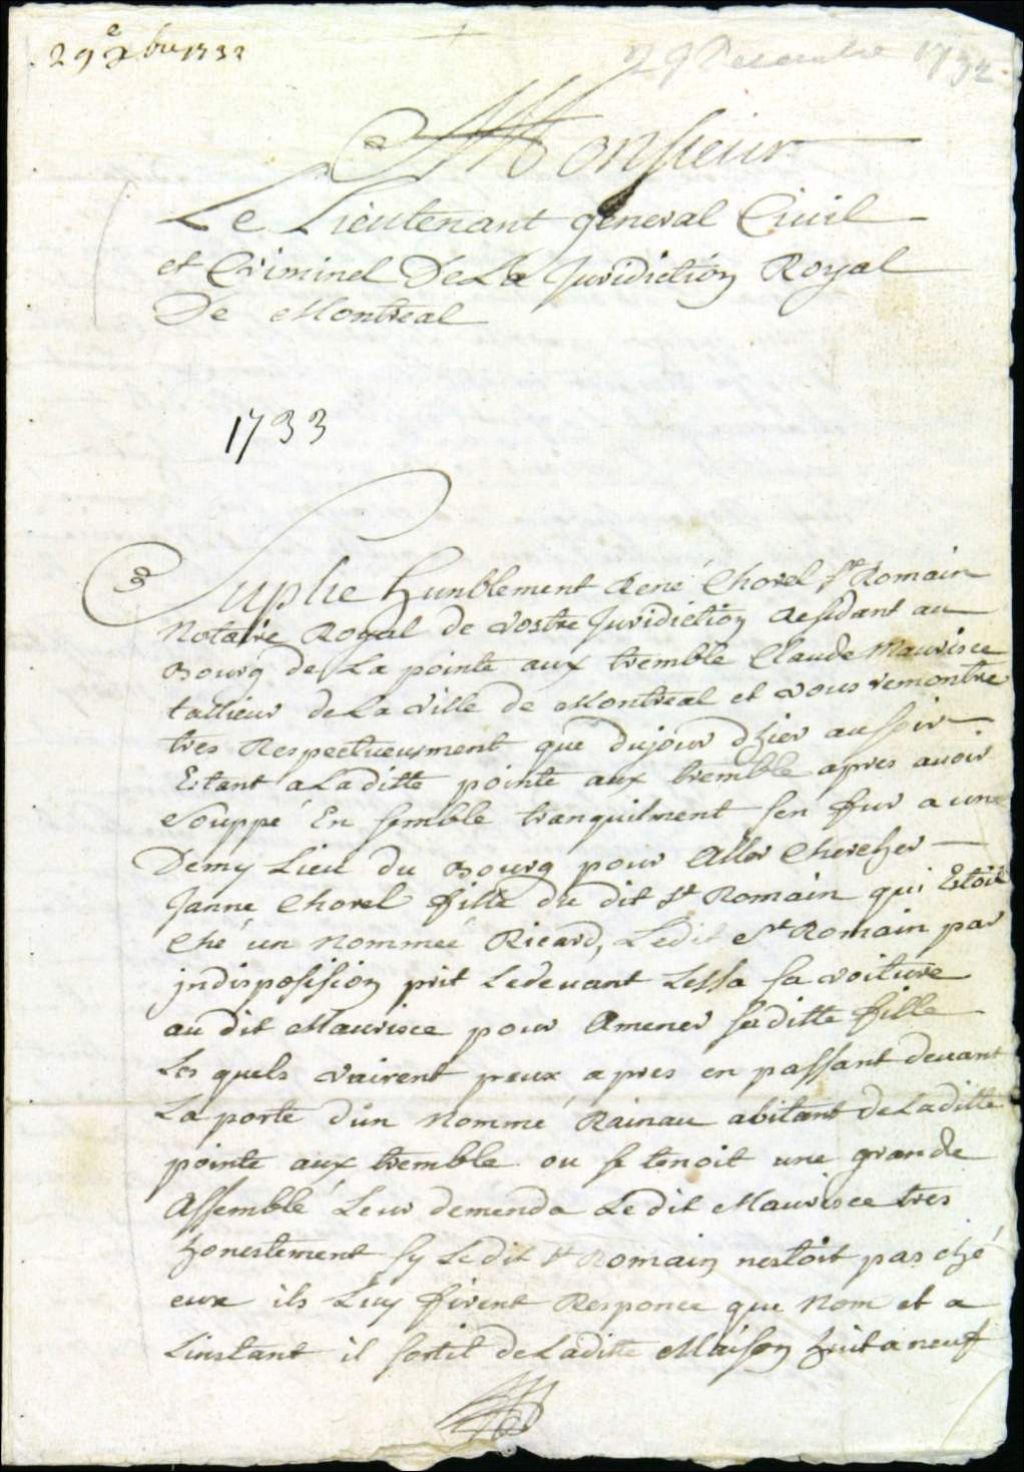 29e xbre 1733
29 Décembre 1732
Monsieur
Le Lieutenant general Ciuil
et Criminel De La Juridiction Royal
De Montreal
1733
Suplie humblement René Chorel St Romain
Notaire Royal de vostre Juridiction Residant au
Bourg de La pointe aux tremble Claude Maurisce
tallieur de La ville de Montreal et vous remontre
tres Respectueusment que dujour dhier au soir
Estant a La ditte pointe aux tremble apres auoir
Souppé En semble tranquilment sen fur a une
Demy Lieu du Bourg pour Aller chercher
Janne Chorel fille du dit St Romain qui Estoit
Ché un nommeé Ricard, Ledit St Romain par
jndisposision prit Le deuant Lessa sa voiture
au dit Maurisce pour Amener saditte fille
Les quels vairent peux apres en passant deuant
La porte d'un Nommé Rainau abitant de Laditte
pointe aux tremble ou se tenoit une grande
Assemblé Leur demenda Le dit Maurisce tres
honestement sy Le dit St Romain nestoit pas ché
eux ils Luy firent Responce que Nom et a
Linstant il sortit de Laditte Maison huit a neuf